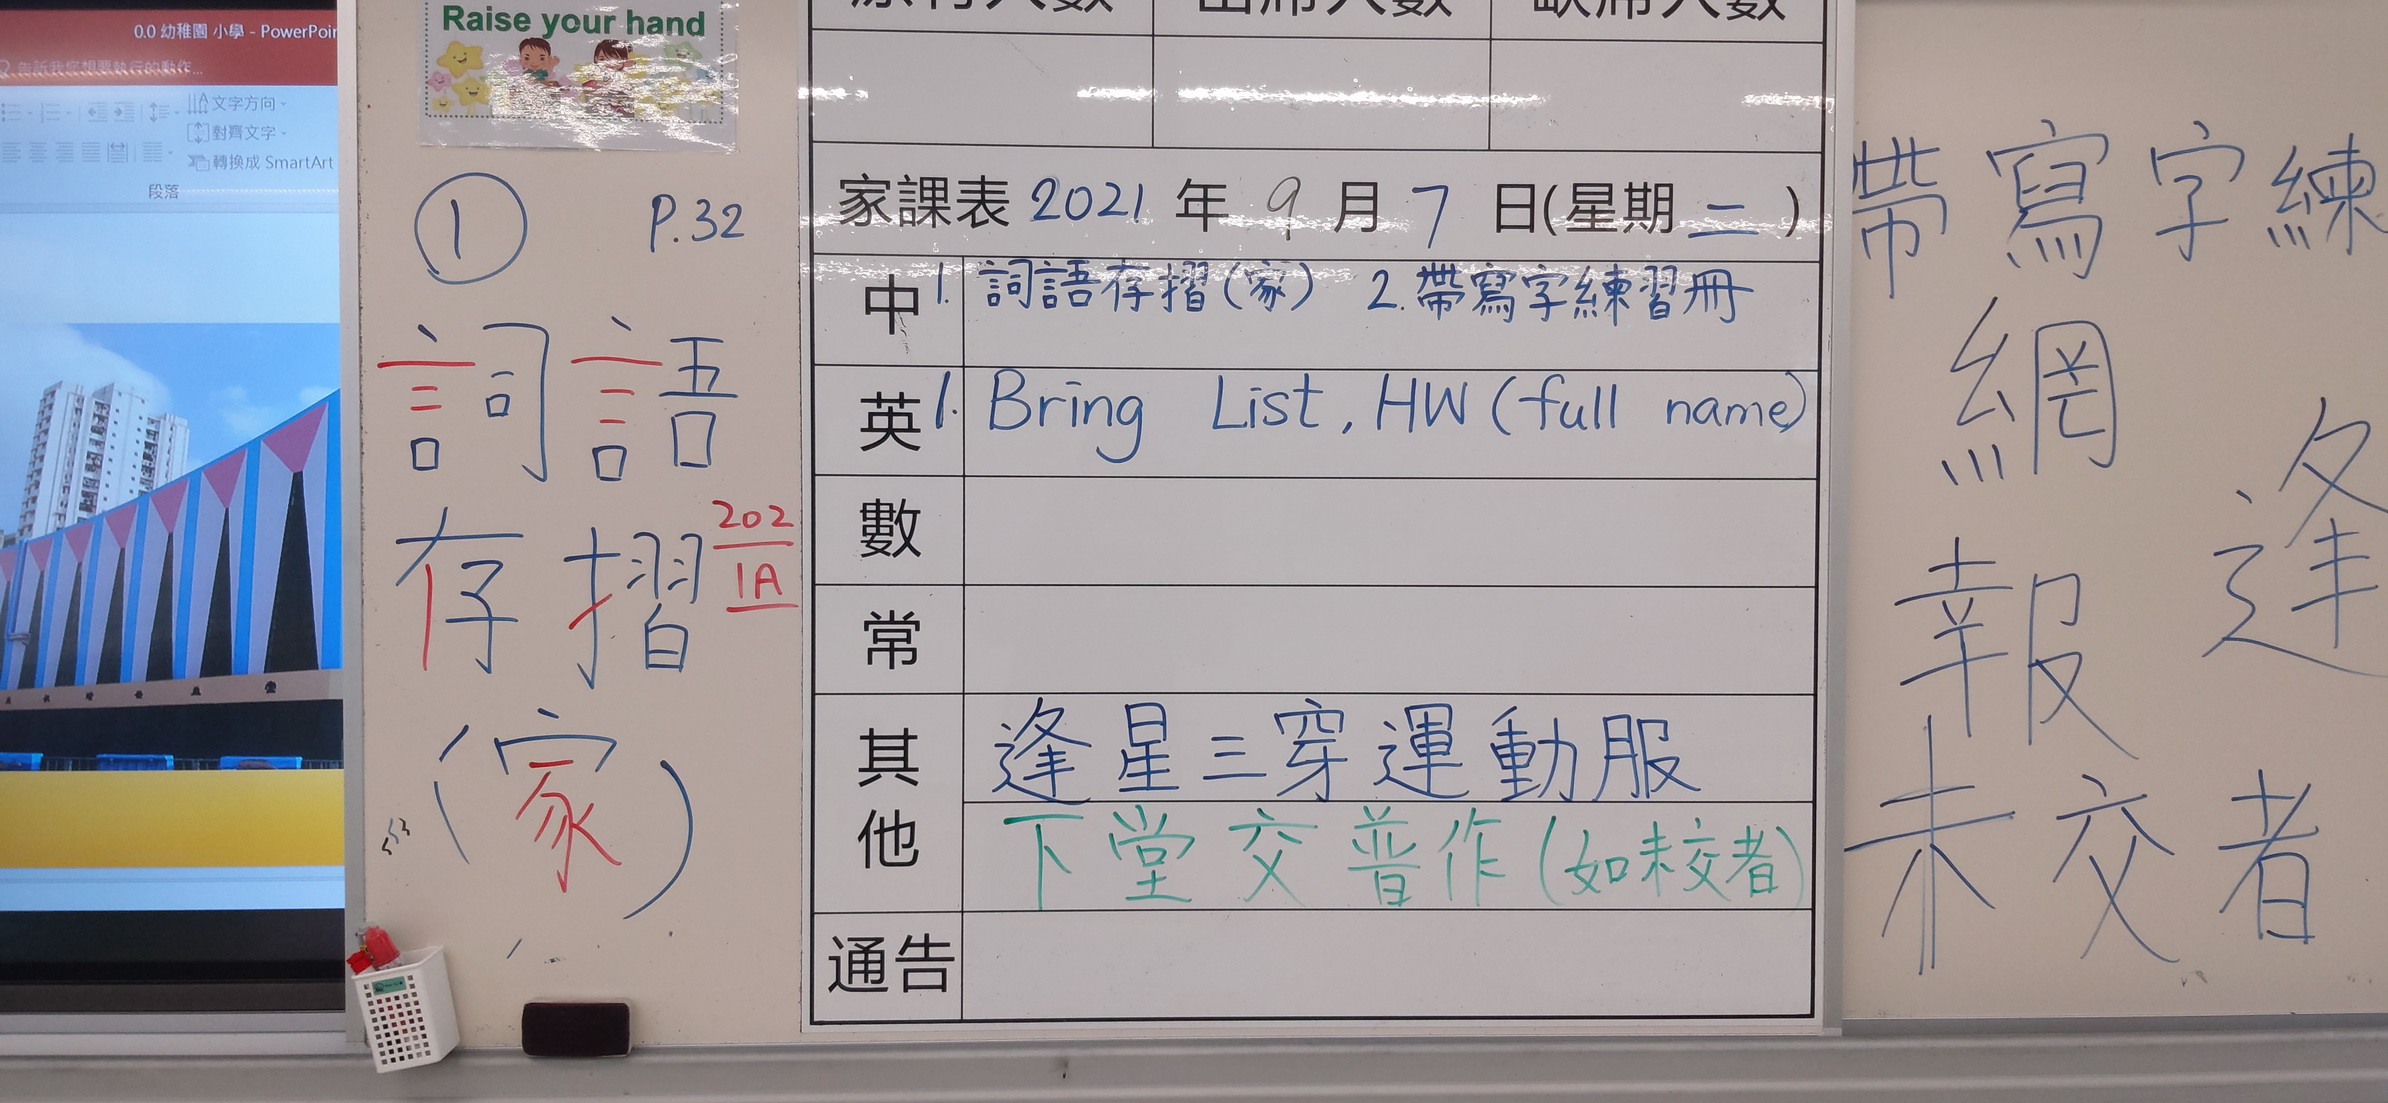 0.0 幼稚園 小學 - PowerPoin
告訴我您想要執行的動作...
文字方向
對齊文字
轉換成 SmartArt
段落
Raise your hand
① P.32
詞語
存摺
202
1A
(家)
原有人數 出席人數 缺席人數
家課表 2021 年 9 月 7 日(星期二)
中 1. 詞語存摺(家) 2. 帶寫字練習冊
英 1. Bring List, HW (full name)
數
常
其他 逢星三穿運動服
下堂交普作(如未交者)
通告
帶寫字練
網
逢
報
未交者